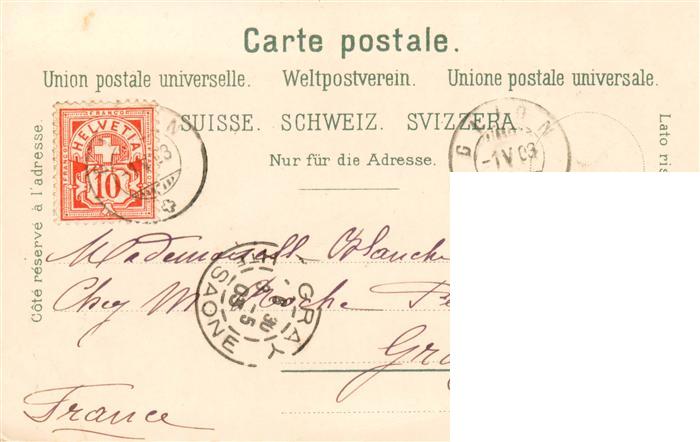 Carte postale.
Union postale universelle. Weltpostverein. Unione postale universale.
SUISSE. SCHWEIZ. SVIZZERA
Nur für die Adresse.
Côté réservé à l'adresse.
Lato ris
FRANCO
HELVETIA
10
GLION
-1 V 03
GRAY
Hte SAONE
Mademoiselle Blanche
Chez M Roche
Gra
France